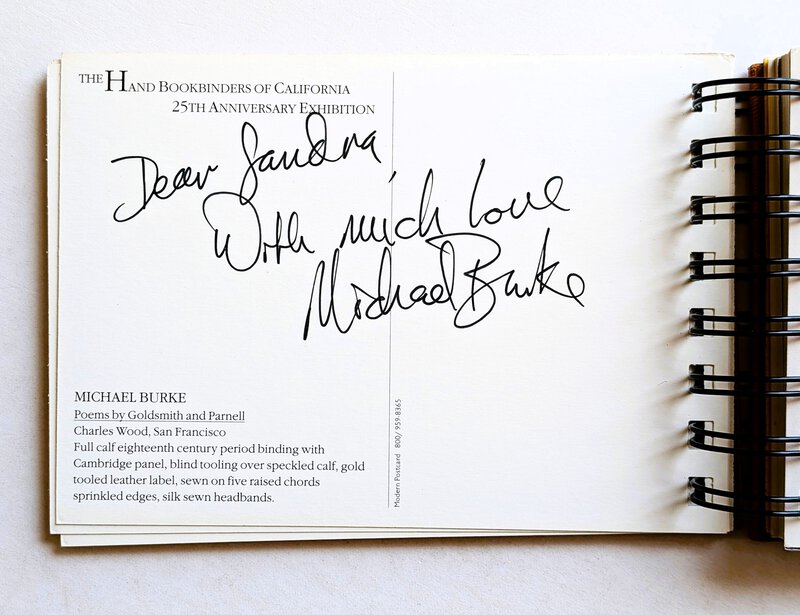 THE HAND BOOKBINDERS OF CALIFORNIA
25TH ANNIVERSARY EXHIBITION
Dear Sandra,
With much love
Michael Burke
MICHAEL BURKE
Poems by Goldsmith and Parnell
Charles Wood, San Francisco
Full calf eighteenth century period binding with
Cambridge panel, blind tooling over speckled calf, gold
tooled leather label, sewn on five raised chords
sprinkled edges, silk sewn headbands.
Modern Postcard 800/ 959-8365